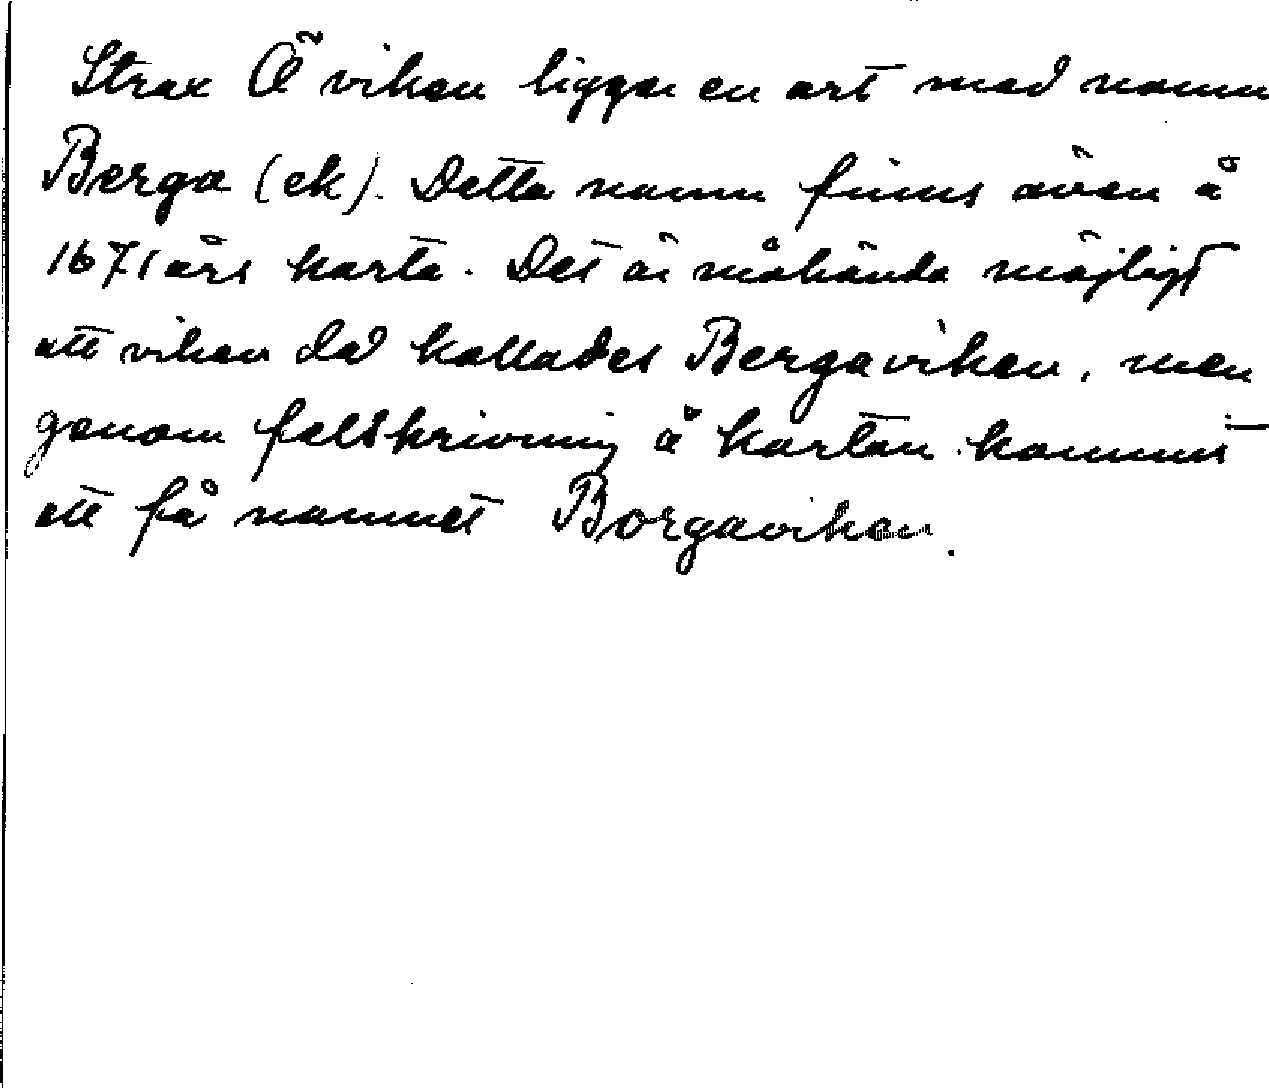 Strax Ö viken ligger en ort med namn
Berga (ek). Detta namn finns även å
1671 års karta. Det är måhända möjligt
att viken då kallades Bergaviken, men
genom felskrivning å kartan kommit
att få namnet Borgaviken.